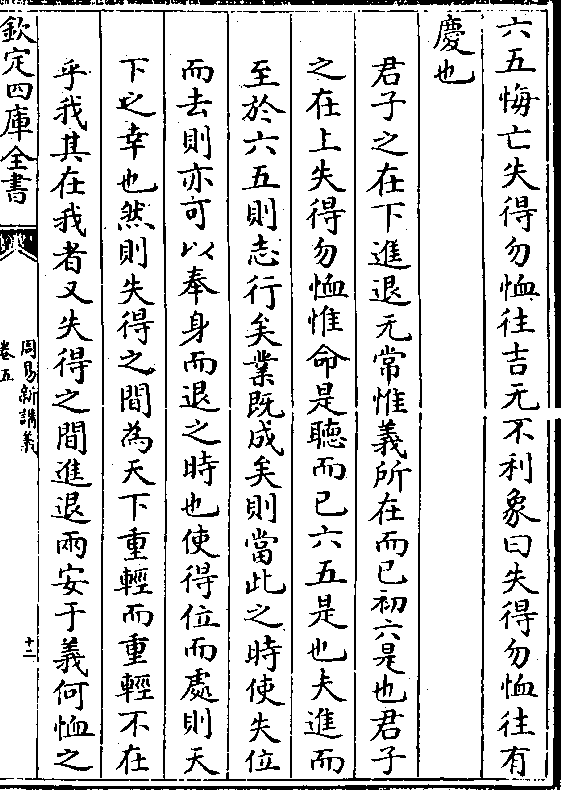 六五悔亡失得勿恤往吉无不利象曰失得勿恤往有
慶也
君子之在下進退无常惟義所在而已初六是也君子
之在上失得勿恤惟命是聽而已六五是也夫進而
至於六五則志行矣業既成矣則當此之時使失位
而去則亦可以奉身而退之時也使得位而處則天
下之幸也然則失得之間為天下重輕而重輕不在
乎我其在我者又失得之間進退兩安于義何恤之
欽定四庫全書
周易新講義
卷五
十二